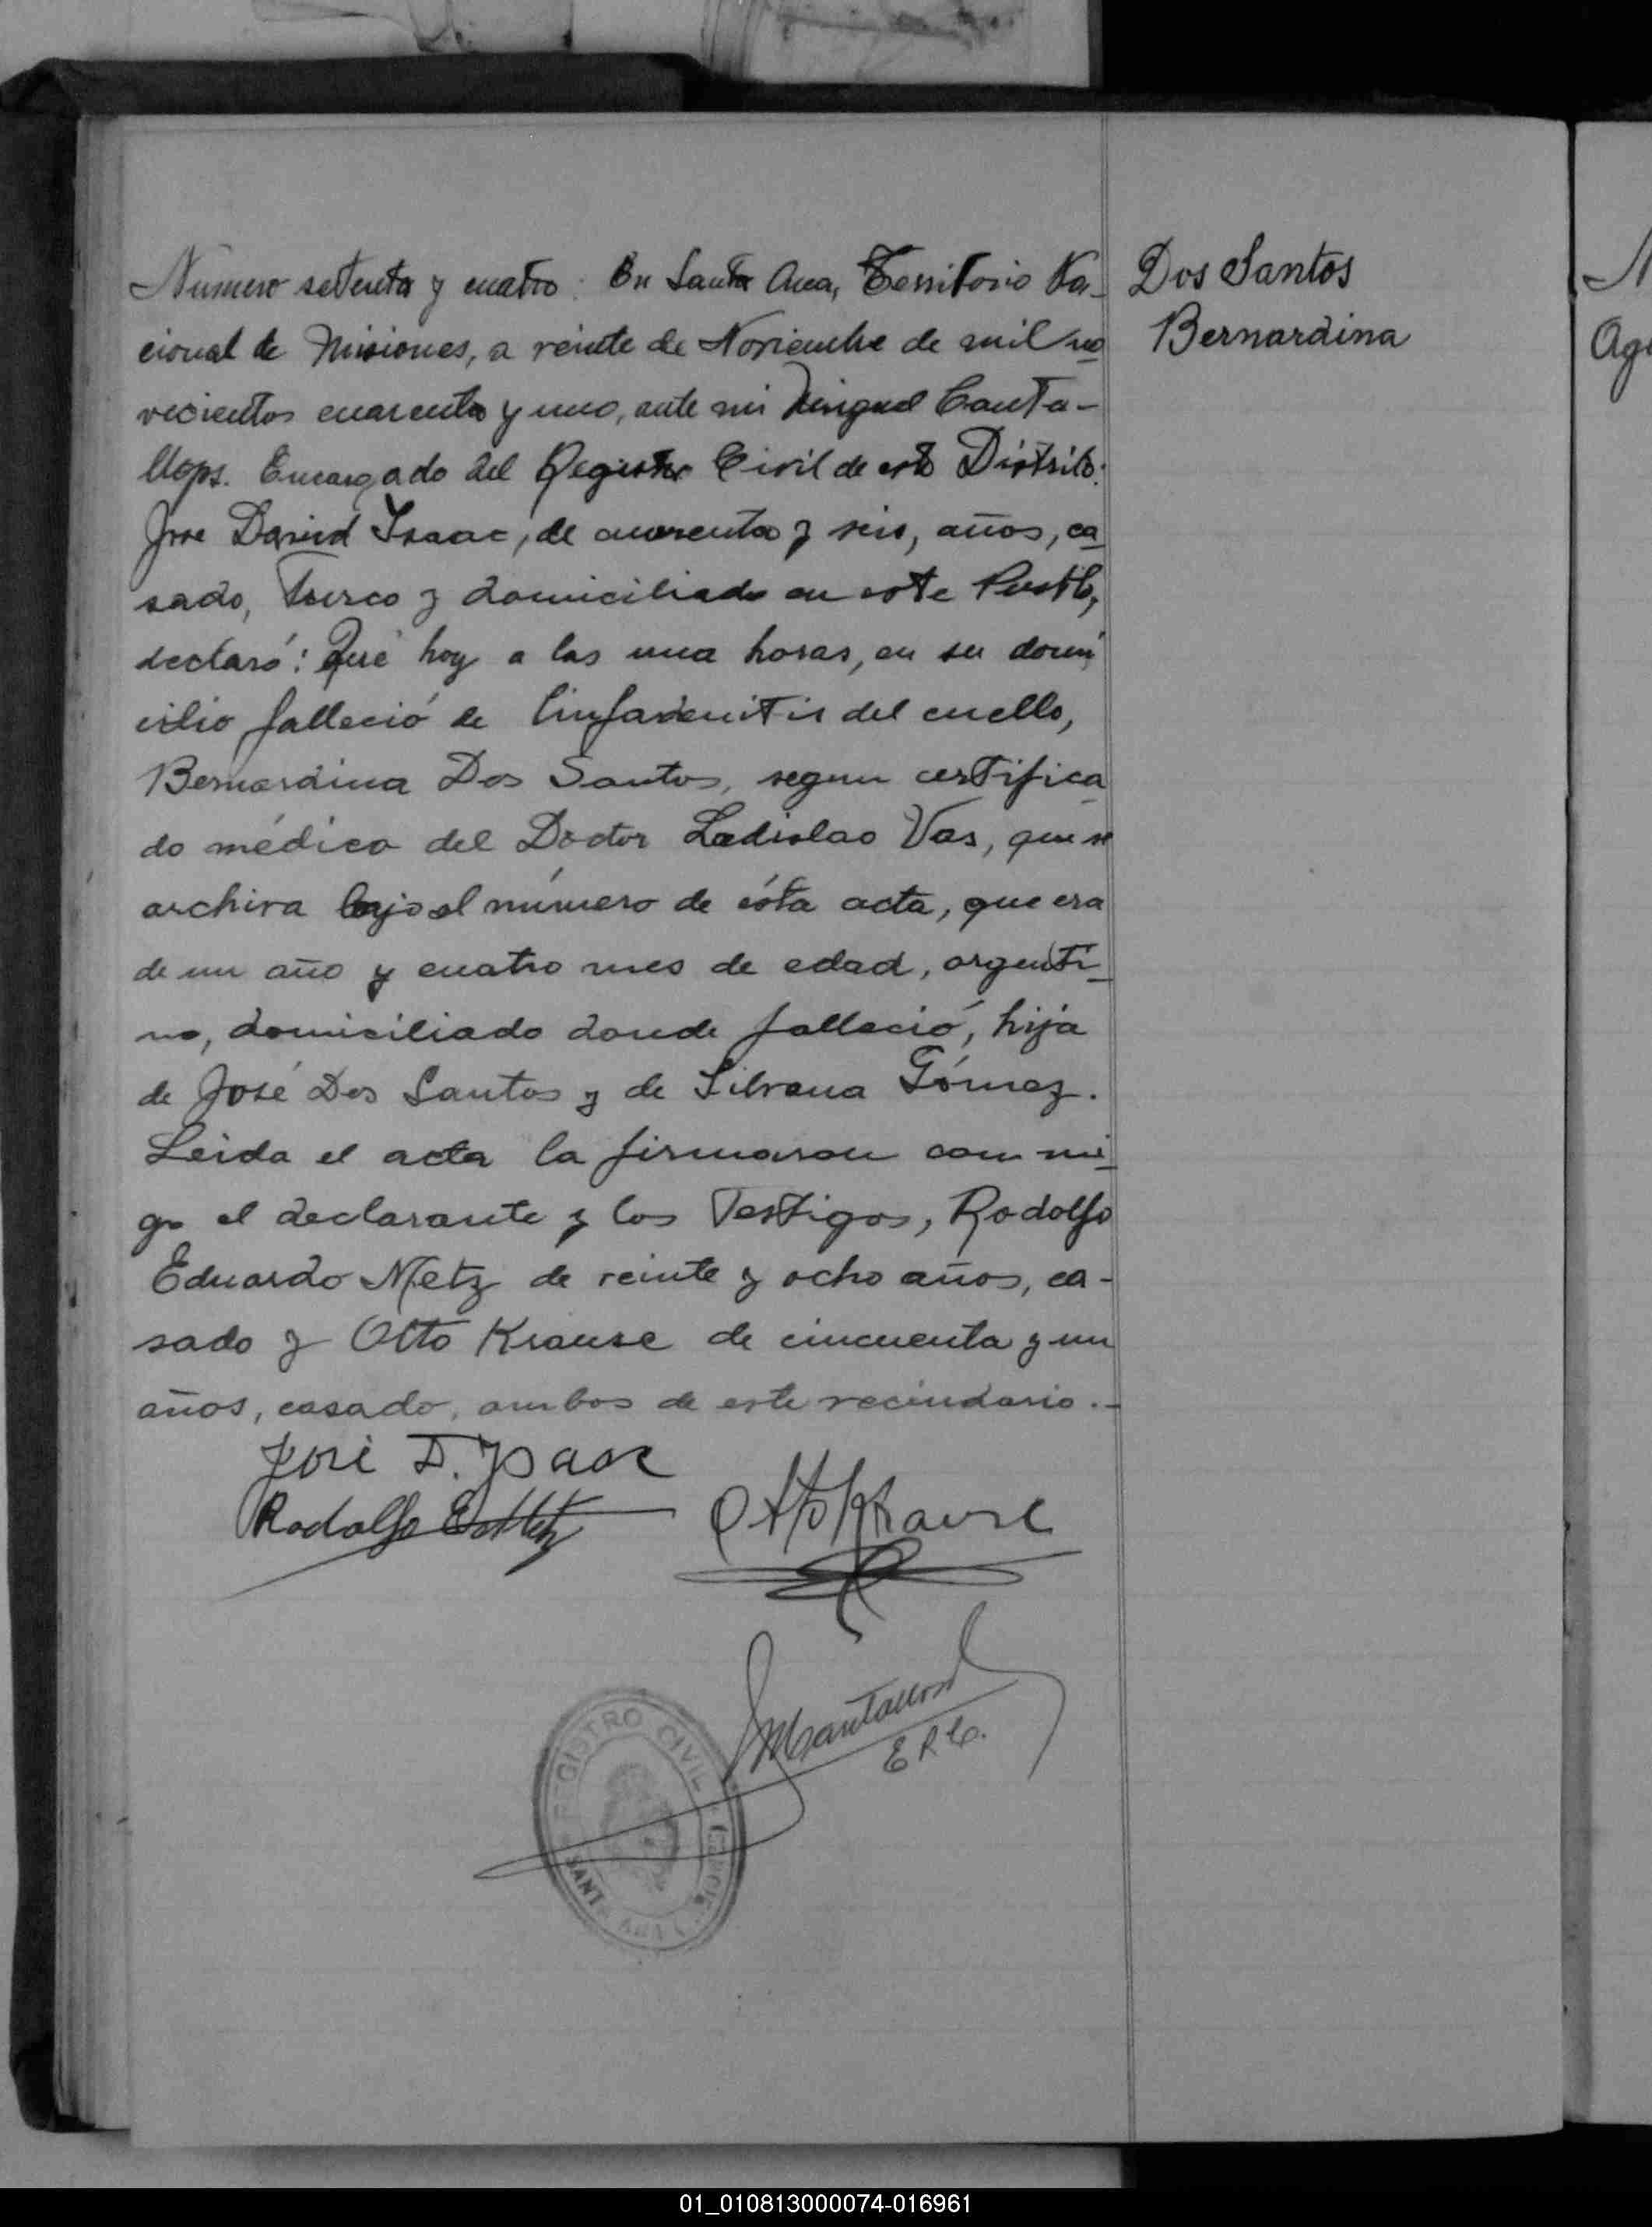 Dos Santos
Bernardina
Número setenta y cuatro: En Santa Ana, Territorio Na-
cional de Misiones, a veinte de Noviembre de mil no
vecientos cuarenta y uno, ante mi Miguel Canta-
llops. Encargado del Registro Civil de este Distrito:
Jose David Isaac, de cuarenta y seis, años, ca
sado, Turco y domiciliado en este Pueblo,
declaró: Que hoy a las una horas, en su domi
cilio falleció de linfadenitis del cuello,
Bernardina Dos Santos, segun certifica
do médico del Doctor Ladislao Vas, que se
archiva bajo el número de ésta acta, que era
de un año y cuatro mes de edad, argenti
no, domiciliado donde falleció, hija
de José Dos Santos y de Silvana Gómez.
Leida el acta la firmaron com mi
go el declarante y los Testigos, Rodolfo
Eduardo Metz de veinte y ocho años, ca-
sado y Otto Krause de cincuenta y un
años, casado, ambos de este vecindario.-
José D. Isaac
Rodolfo E. Metz
Otto Krause
MCantallops
E R C.
REGISTRO CIVIL
SANTA ANA
N
Ag
01_010813000074-016961